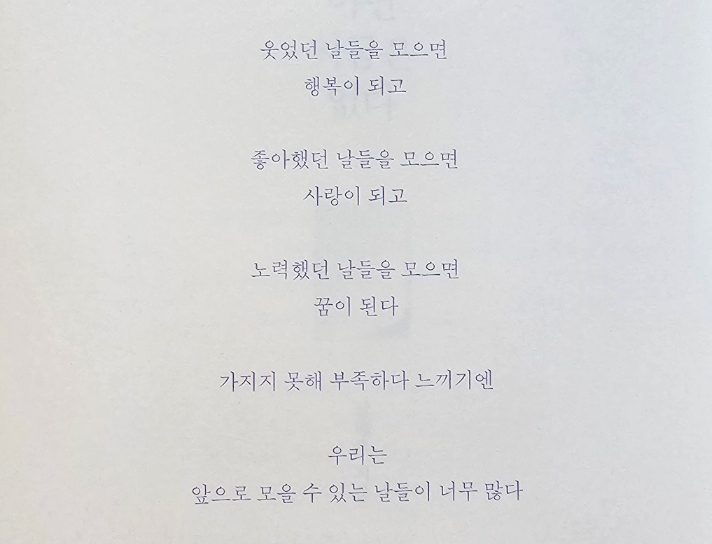 웃었던 날들을 모으면
행복이 되고
좋아했던 날들을 모으면
사랑이 되고
노력했던 날들을 모으면
꿈이 된다
가지지 못해 부족하다 느끼기엔
우리는
앞으로 모을 수 있는 날들이 너무 많다